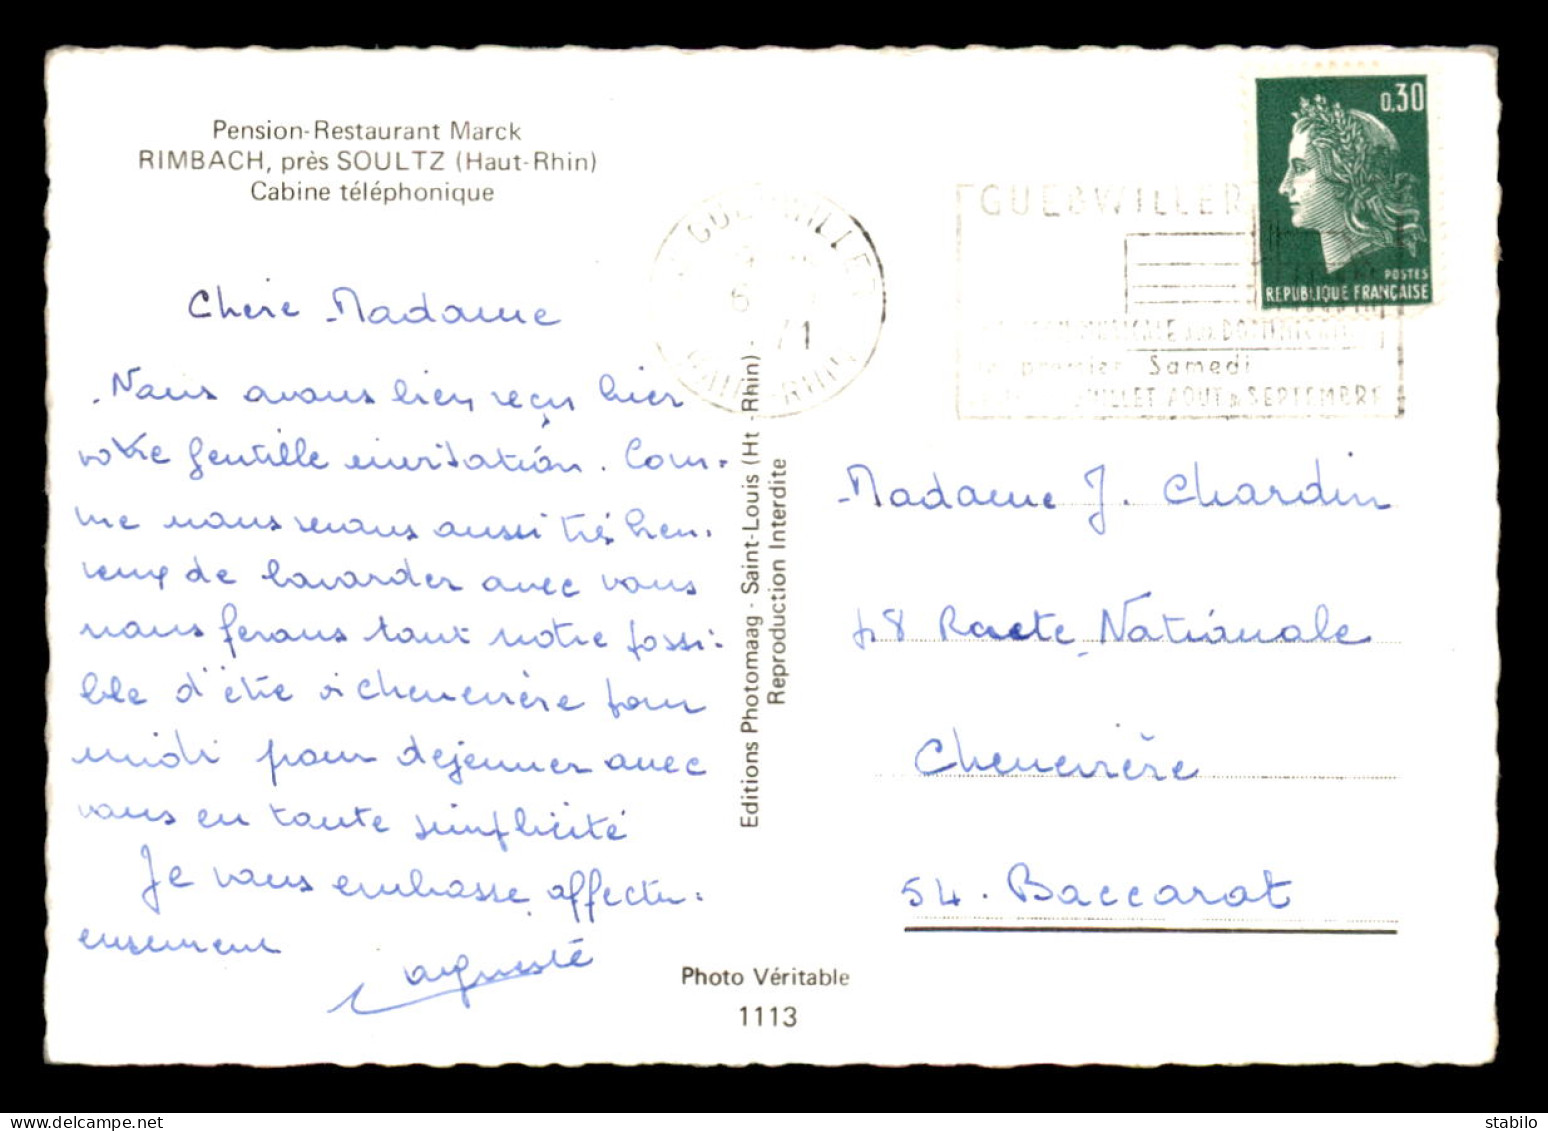 Pension-Restaurant Marck
RIMBACH, près SOULTZ (Haut-Rhin)
Cabine téléphonique
0.30
POSTES
REPUBLIQUE FRANÇAISE
GUEBWILLER
71
GUEBWILLER
premier Samedi
JUILLET AOUT & SEPTEMBRE
Chère Madame
Nous avons bien reçu hier
votre gentille invitation. Com-
me nous serons aussi très heu-
reux de bavarder avec vous
nous ferons tout notre possi-
ble d'être à Chenevière pour
midi pour dejeuner avec
vous en toute simplicité
Je vous embrasse affectu-
eusement
Editions Photomaag - Saint-Louis (Ht -Rhin) -
Reproduction Interdite
Madame J. Chardin
Route Nationale
Chenevière
54. Baccarat
Photo Véritable
1113
stabilo